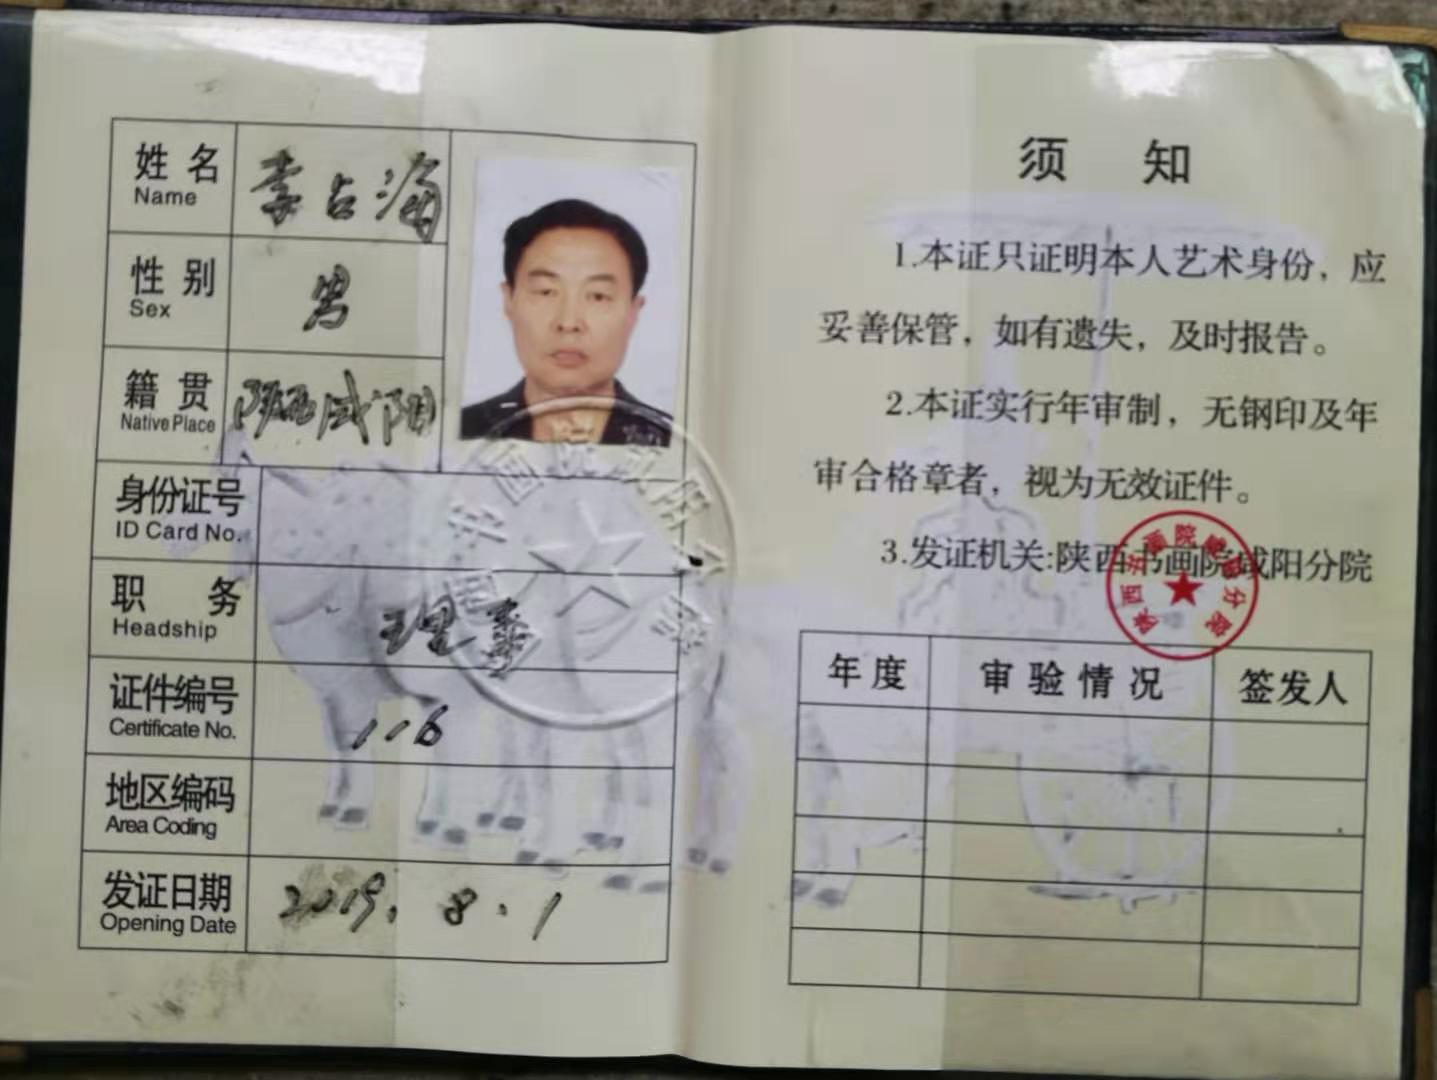 姓名
Name
李占涌
性别
Sex
男
籍贯
Native Place
陕西咸阳
身份证号
ID Card No.
职务
Headship
理事
证件编号
Certificate No.
116
地区编码
Area Coding
发证日期
Opening Date
2019.8.1
须知
1.本证只证明本人艺术身份，应
妥善保管，如有遗失，及时报告。
2.本证实行年审制，无钢印及年
审合格章者，视为无效证件。
3.发证机关:陕西书画院咸阳分院
陕西书画院咸阳分院
年度 审验情况 签发人